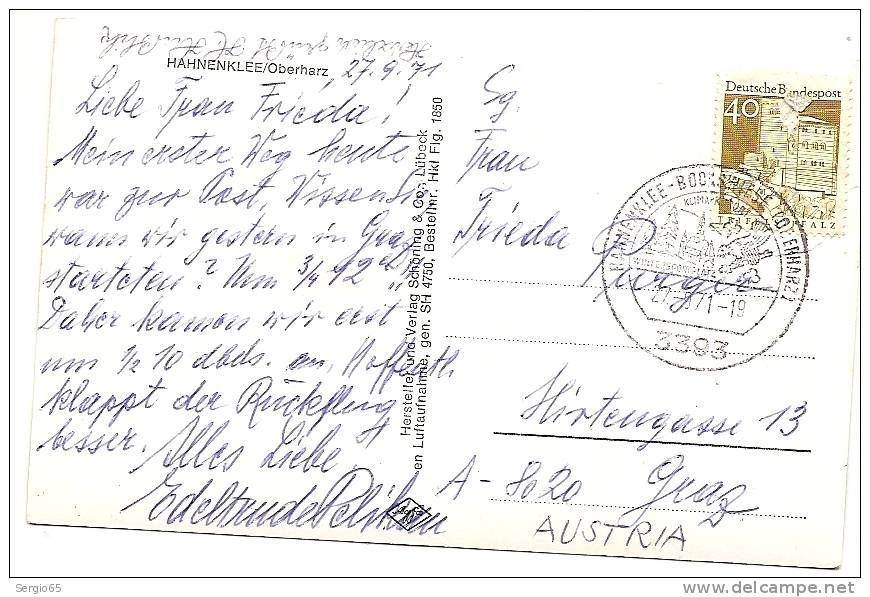 Herzlich grüßt
HAHNENKLEE/Oberharz, 27.9.71
Liebe Frau Frieda!
Mein erster Weg heute
war zur Post. Wissen Sie
wann wir gestern in Graz
starteten? Um 3/4 12
Daher kamen wir erst
um 1/2 10 abds. an, Hoffentl.
klappt der Rückflug
besser. Alles Liebe
Edeltraude
Hersteller und Verlag Schöning & Co., Lübeck
en Luftaufnahme, gen. SH 4750, Bestellnr. Hkl Fig. 1850
Deutsche Bundespost
40
HAHNENKLEE-BOCKSWIESE (OBERHARZ)
27.9.71-19
3393
Sg.
Frau
Frieda Purger
Hirtengasse 13
A-8020 Graz
AUSTRIA
Sergio65
www.delcampe.net